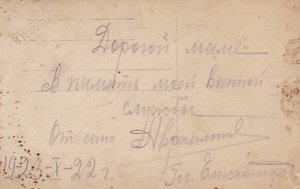 Дорогой маме
В память моей Военной
службы
От сына
1923-X-22 г.
Гор.